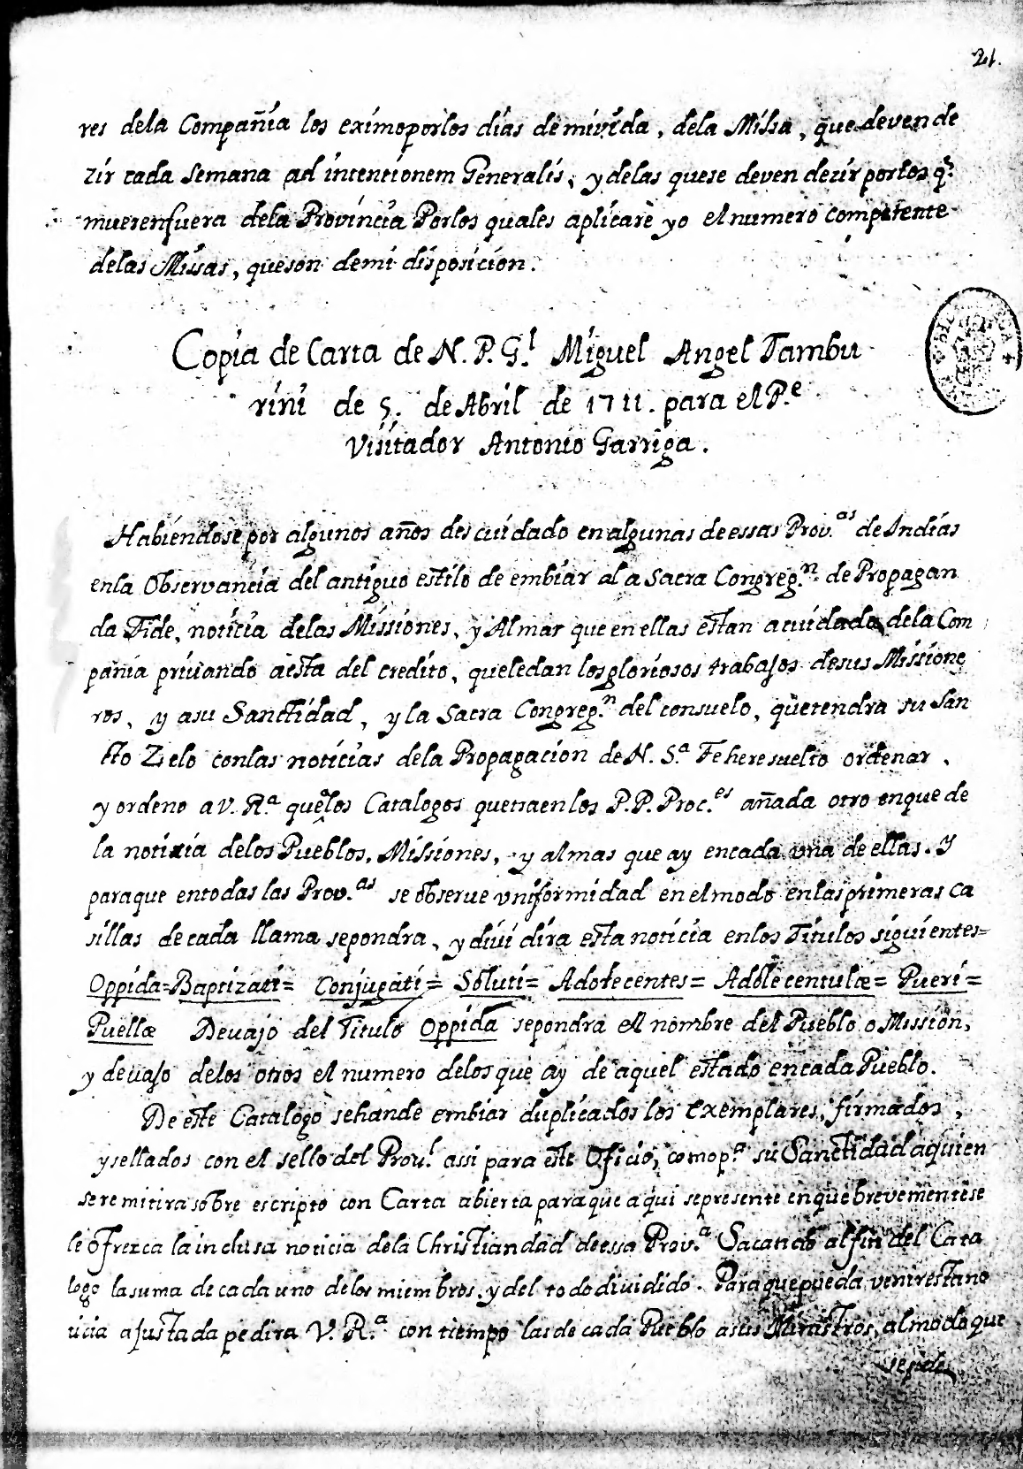 21.
res dela Compañia los eximoporlos dias demivida, dela Missa, que deven de
zir cada semana ad intentionem Generalis, y delas quese deven dezir porlos q.s
muerenfuera dela Provincia Porlos quales aplicarè yo el numero competente
delas Missas, queson demi disposicion.
Copia de Carta de N. P. G.l Miguel Angel Tambu
rini de 5. de Abril de 1711. para el P.e
Visitador Antonio Garriga.
Habiendose por algunos años descuidado en algunas de essas Prov.as de Indias
enla Observancia del antiguo estilo de embiar al a Sacra Congreg.n de Propagan
da Fide, noticia delas Missiones, y Almas que en ellas estan acuidado dela Com
pania privando aesta del credito, queledan losgloriosos trabajos desus Missione
ros, y asu Sanctidad, y la Sacra Congreg.n del consuelo, quetendra su San
cto Zielo conlas noticias dela Propagacion de N. S.a Fe heresuelto ordenar,
y ordeno a V. R.a que los Catalogos quetraen los P.P. Proc.es añada otro enque de
la noticia delos Pueblos, Missiones, y almas que ay encada una de ellas. Y
paraque entodas las Prov.as se observe uniformidad en el modo enlasprimeras ca
sillas de cada llama sepondra, y dividira esta noticia enlos Titulos siguientes=
Oppida=Baptizati= Conjugati= Soluti= Adolecentes= Adolecentulæ= Pueri=
Puellæ Devajo del Titulo Oppida sepondra el nombre del Pueblo o Mission,
y devajo delos otros el numero delos que ay de aquel estado encada Pueblo.
De este Catalogo sehande embiar duplicados los exemplares, firmados,
ysellados con el sello del Prov.l assi para este Oficio, como p.a su Sanctidad aquien
seremitira sobre escripto con Carta abierta paraque aqui sepresente enque brevementese
le ofrezca la inclusa noticia dela Christiandad deessa Prov.a Sacando alfin del Cata
logo lasuma de cada uno delos miembros, y del todo dividido. Paraquepueda venirestano
ticia ajustada pedira V. R.a con tiempo las de cada Pueblo asus Ministros, almodo que
sepide